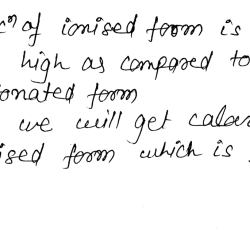 cⁿ of ionised form is
high as compared to
onated form
we will get
ised form which is